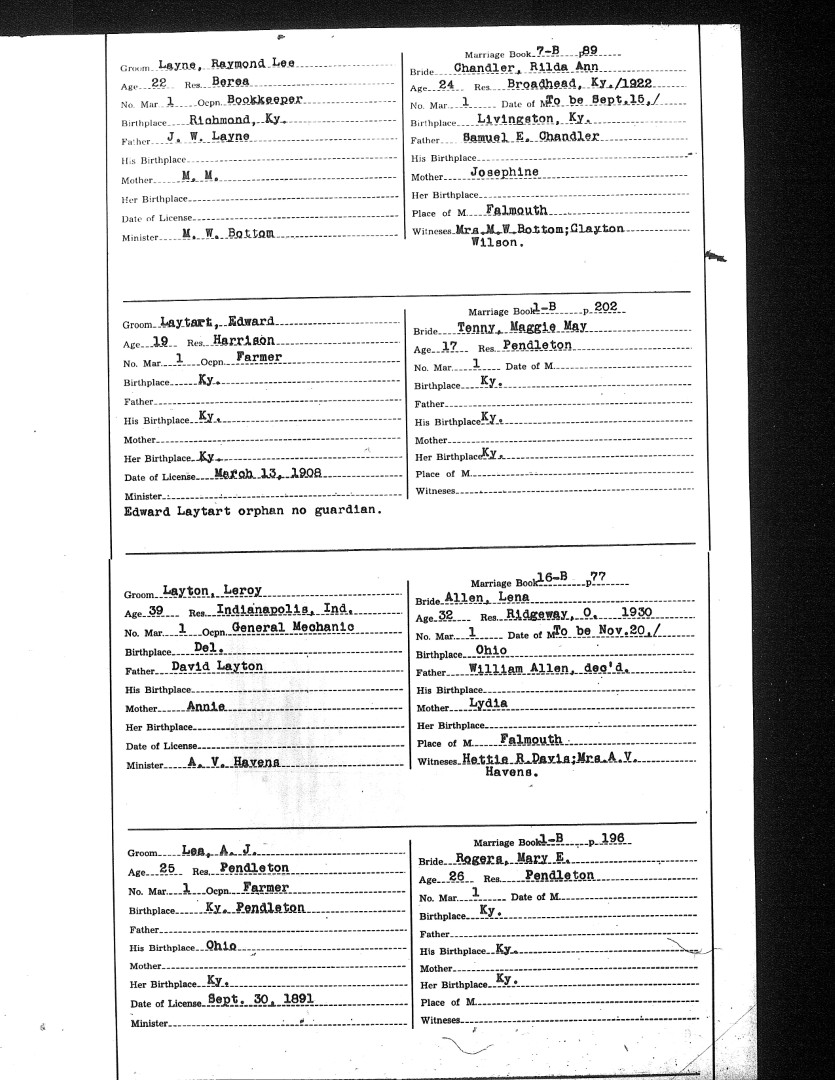 Marriage Book 7-B p89
Groom Layne, Raymond Lee
Age 22 Res. Berea
No. Mar. 1 Ocpn. Bookkeeper
Birthplace Richmond, Ky.
Father J. W. Layne
His Birthplace
Mother M. M.
Her Birthplace
Date of License
Minister M. W. Bottom
Bride Chandler, Rilda Ann
Age 24 Res Broadhead, Ky./1922
No. Mar. 1 Date of M To be Sept.15,/
Birthplace Livingston, Ky.
Father Samuel E. Chandler
His Birthplace
Mother Josephine
Her Birthplace
Place of M. Falmouth
Witneses Mrs.M.W.Bottom;Clayton
Wilson.
Marriage Book 1-B p. 202
Groom Laytart, Edward
Age 19 Res. Harrison
No. Mar. 1 Ocpn. Farmer
Birthplace Ky.
Father
His Birthplace Ky.
Mother
Her Birthplace Ky.
Date of License March 13, 1908
Minister
Edward Laytart orphan no guardian.
Bride Tenny, Maggie May
Age 17 Res. Pendleton
No. Mar. 1 Date of M.
Birthplace Ky.
Father
His Birthplace Ky.
Mother
Her Birthplace Ky.
Place of M.
Witneses
Marriage Book 16-B p77
Groom Layton, Leroy
Age 39 Res. Indianapolis, Ind.
No. Mar. 1 Ocpn. General Mechanic
Birthplace Del.
Father David Layton
His Birthplace
Mother Annie
Her Birthplace
Date of License
Minister A. V. Havens
Bride Allen, Lena
Age 32 Res. Ridgeway, O. 1930
No. Mar. 1 Date of M To be Nov.20,/
Birthplace Ohio
Father William Allen, dec'd.
His Birthplace
Mother Lydia
Her Birthplace
Place of M. Falmouth
Witneses Hettie R.Davis;Mrs.A.V.
Havens.
Marriage Book 1-B p. 196
Groom Lea, A. J.
Age 25 Res. Pendleton
No. Mar. 1 Ocpn. Farmer
Birthplace Ky. Pendleton
Father
His Birthplace Ohio
Mother
Her Birthplace Ky.
Date of License Sept. 30, 1891
Minister
Bride Rogers, Mary E.
Age 26 Res. Pendleton
No. Mar. 1 Date of M.
Birthplace Ky.
Father
His Birthplace Ky.
Mother
Her Birthplace Ky.
Place of M.
Witneses